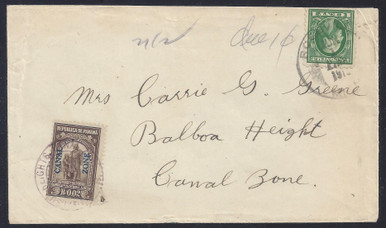 Due 1¢
Mrs Carrie G. Greene
Balboa Height
Canal Zone.
REPUBLICA DE PANAMA
CANAL ZONE
B.0.02